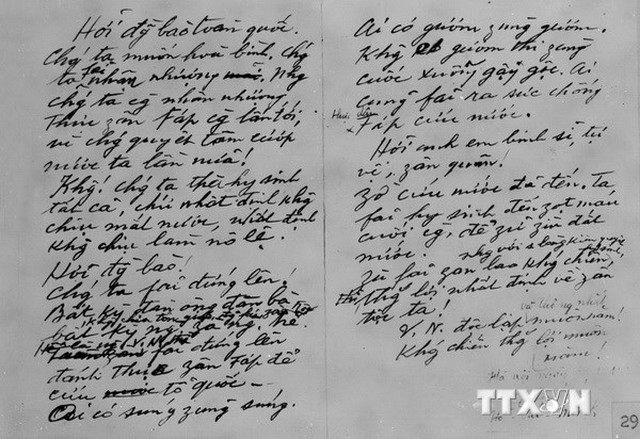 Hỡi đg̃ bào toàn quốc.
Chg' ta muốn hoà bình, chg'
ta fải nhân nhượng. Nhg
chg' ta cg̃ nhân nhượng
Thực zân Fáp cg̃ lấn tới,
vì chg' quyết tâm cướp
nước ta lần nữa!
Khg! chg' ta thà hy sinh
tất cả, chứ nhất định khg
chịu mất nước, nhất định
khg chịu làm nô lệ.
Hỡi đg̃ bào!
Chg' ta fải đứng lên!
Bất kỳ đàn ông đàn bà
bất kỳ ng` zà ng` trẻ
fải đứng lên
đánh Thực zân Fáp để
cứu tổ quốc –
Ai có súng zùng súng.
Ai có gươm zùng gươm.
Khg có gươm thì zùng
cuốc xuổng gậy gộc. Ai
cũng fải ra sức chống
Fáp cứu nước.
Hỡi anh em binh sĩ, tự
vệ, zân quân!
Zờ cứu nước đã đến. Ta
fải hy sinh đến zọt máu
cuối cg̀, để zữ zìn đất
nước.
Zù fải zan lao khg' chiến,
thg' lợi nhất định về zân
tộc ta!
V.N. độc lập muôn năm!
Khg' chiến thg' lợi muôn
năm!
Hà Nội
TTXVN
29